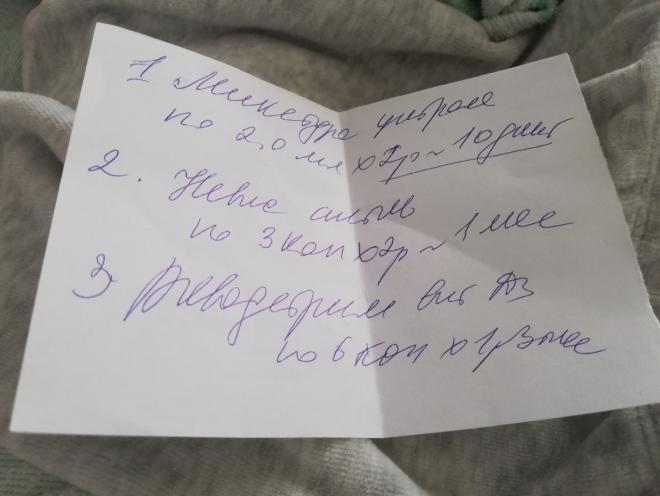 1 Микстура цитраля
по 2,0 мл х 2р ~ 10 дней
2.
по 3 кап х 2р ~ 1 мес
3 Аквадетрим вит Д3
по 6 кап х 1р 3 мес